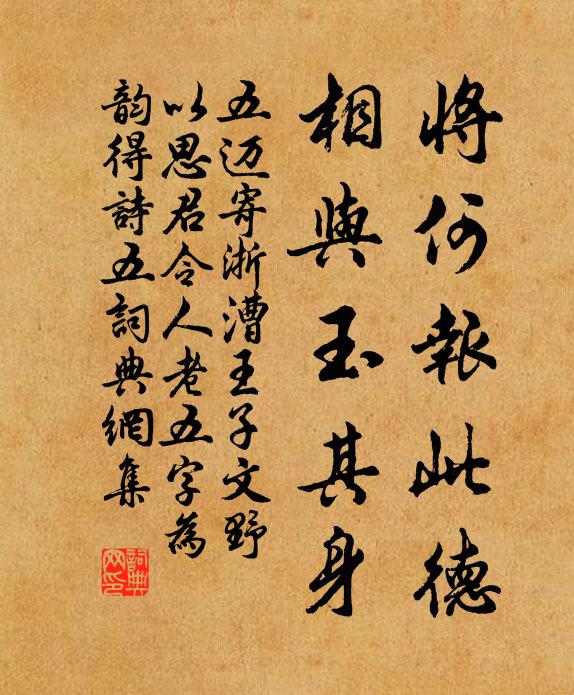 將何報此德
相與玉其身
五迈寄浙漕王子文野
以思君令人老五字為
韵得詩五詞典網集
詞典
网印